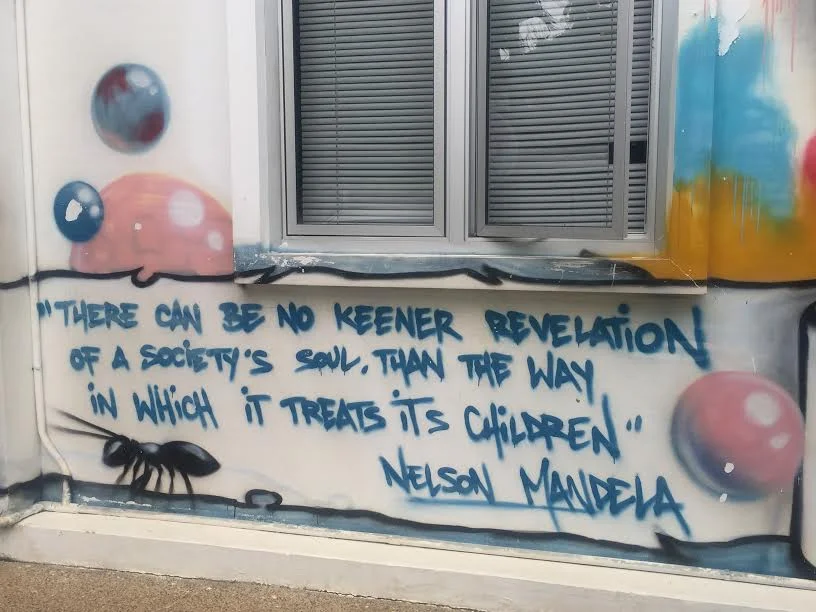 "THERE CAN BE NO KEENER REVELATiON
OF A SOCiETY'S SOUL, THAN THE WAY
iN WHiCH iT TREATS iTS CHiLDREN"
NELSON MANDELA